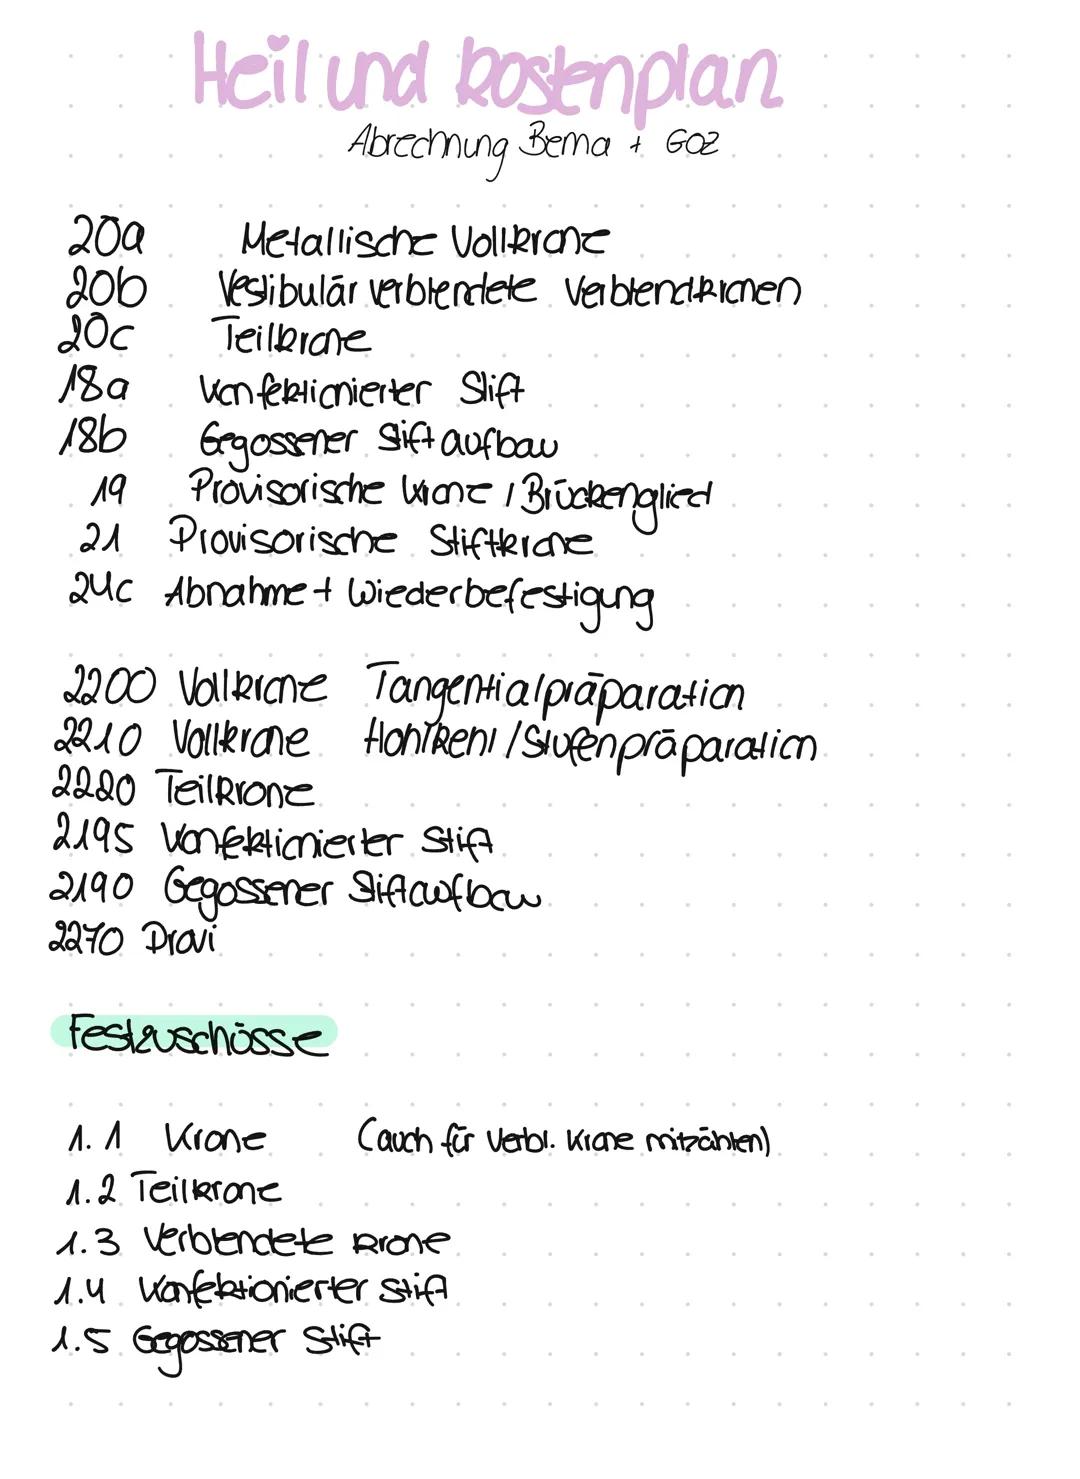 Heil und kostenplan
Abrechnung Bema + GOZ
20a Metallische Vollkrone
20b Vestibulär verblendete Verblendkronen
20c Teilkrone
18a Konfektionierter Stift
18b Gegossener Stiftaufbau
19 Provisorische Krone / Brückenglied
21 Provisorische Stiftkrone
24c Abnahme + Wiederbefestigung
2200 Vollkrone Tangentialpräparation
2210 Vollkrone Hohlkehl / Stufenpräparation
2220 Teilkrone
2195 Konfektionierter Stift
2190 Gegossener Stiftaufbau
2270 Provi
Festzuschüsse
1.1 Krone (auch für Verbl. Krone mitzählen)
1.2 Teilkrone
1.3 Verblendete Krone
1.4 Konfektionierter Stift
1.5 Gegossener Stift